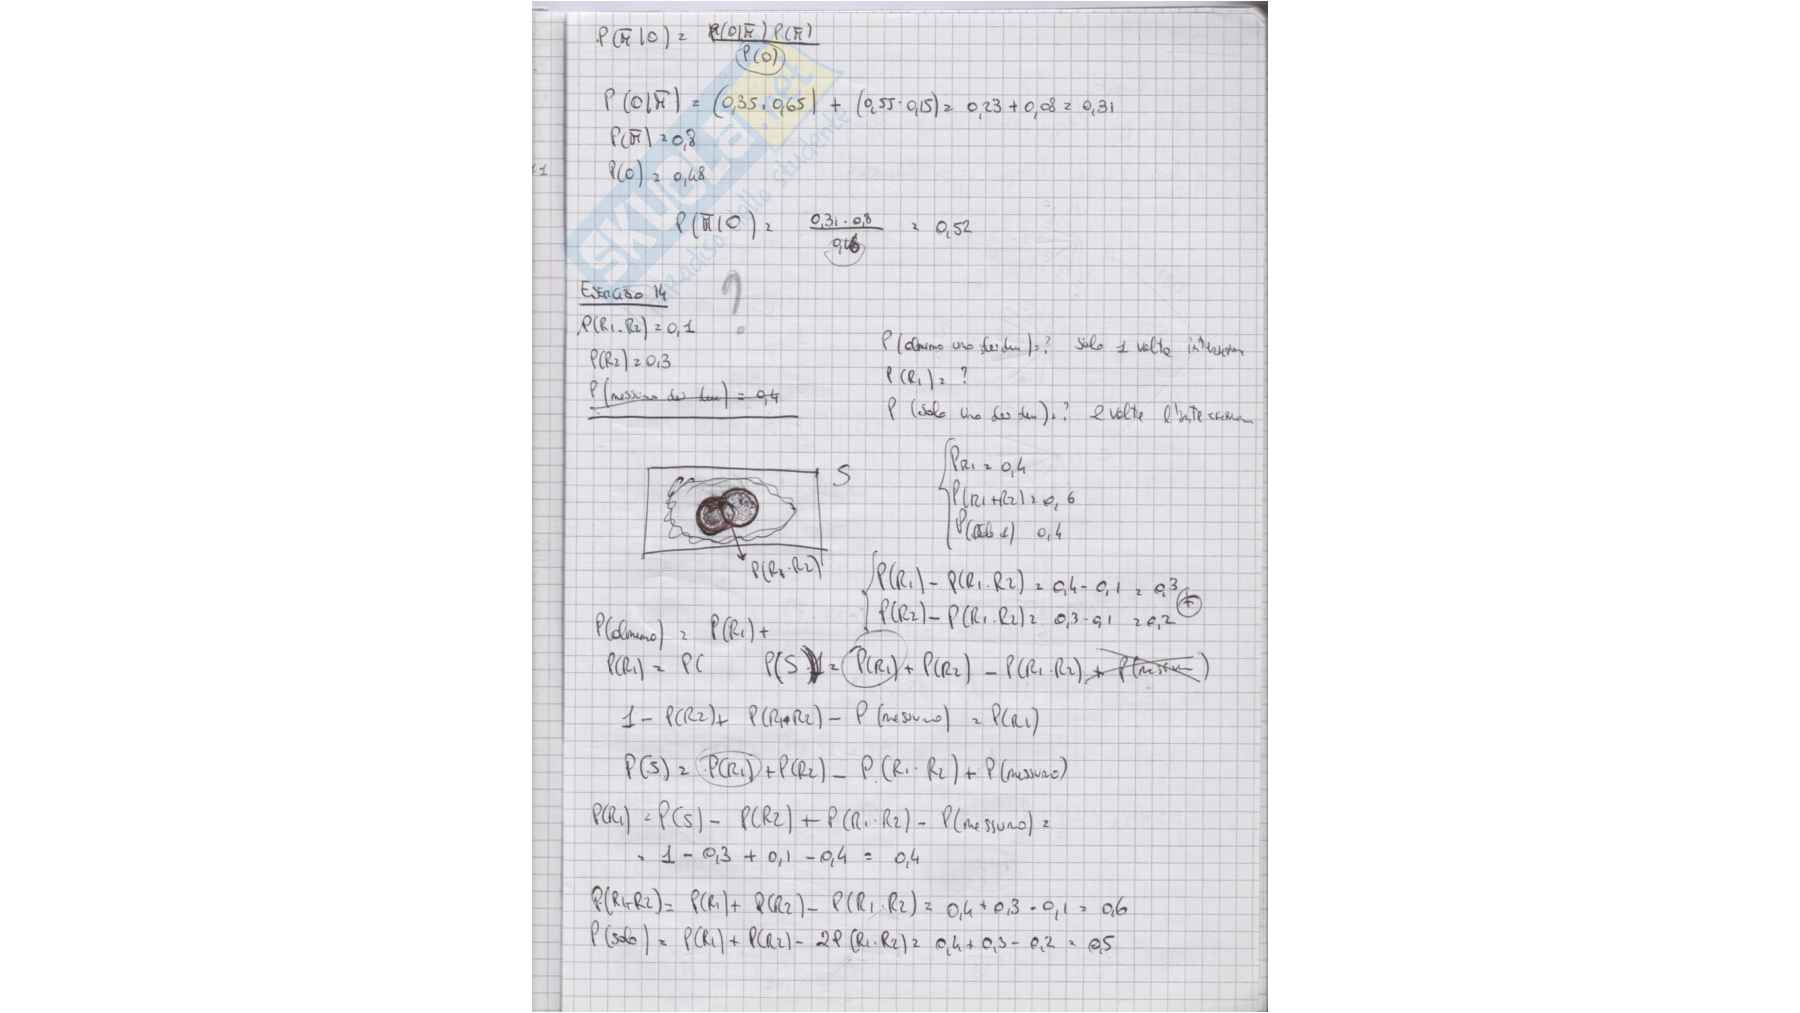 P(π̄|O) = P(O|π̄) P(π̄) / P(O)
P(O|π̄) = (0,35·0,65) + (0,55·0,15) = 0,23 + 0,08 = 0,31
P(π̄) = 0,8
P(O) = 0,48
P(π̄|O) = 0,31·0,8 / = 0,52
SKUOLA.net
Esercizio 14 ?
P(R1·R2) = 0,1
P(R2) = 0,3
P(nessuno dei due) = 0,4
P(almeno uno dei due) = ? solo 1 volta
P(R1) = ?
P(solo uno dei due) = ? 2 volte
S
PR1 = 0,4
P(R1+R2) = 0,6
P(solo 1) 0,4
P(R1·R2)
P(R1) - P(R1·R2) = 0,4 - 0,1 = 0,3
P(R2) - P(R1·R2) = 0,3 - 0,1 = 0,2 +
P(almeno) = P(R1) +
P(R1) = P( P(S) = P(R1) + P(R2) - P(R1·R2) + P(nessun)
1 - P(R2) + P(R1·R2) - P(nessuno) = P(R1)
P(S) = P(R1) + P(R2) - P(R1·R2) + P(nessuno)
P(R1) = P(S) - P(R2) + P(R1·R2) - P(nessuno) =
= 1 - 0,3 + 0,1 - 0,4 = 0,4
P(R1+R2) = P(R1) + P(R2) - P(R1·R2) = 0,4 + 0,3 - 0,1 = 0,6
P(solo) = P(R1) + P(R2) - 2P(R1·R2) = 0,4 + 0,3 - 0,2 = 0,5